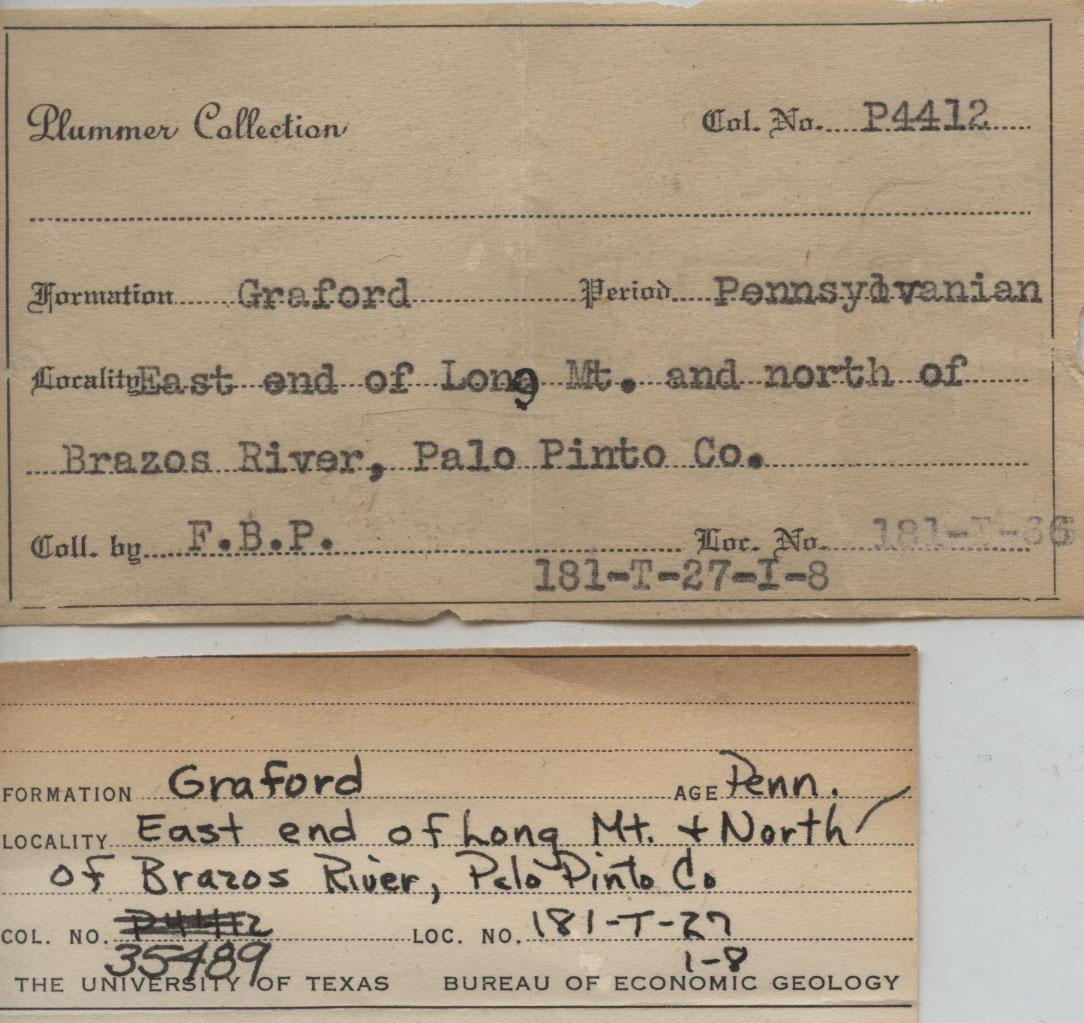 Plummer Collection Col. No. P4412
Formation Graford Period Pennsylvanian
Locality East end of Long Mt. and north of
Brazos River, Palo Pinto Co.
Coll. by F.B.P. Loc. No. 181-T-36
181-T-27-I-8
FORMATION Graford AGE Penn.
LOCALITY East end of Long Mt. + North
of Brazos River, Palo Pinto Co
COL. NO. P4412 LOC. NO. 181-T-27
35489 1-8
THE UNIVERSITY OF TEXAS BUREAU OF ECONOMIC GEOLOGY